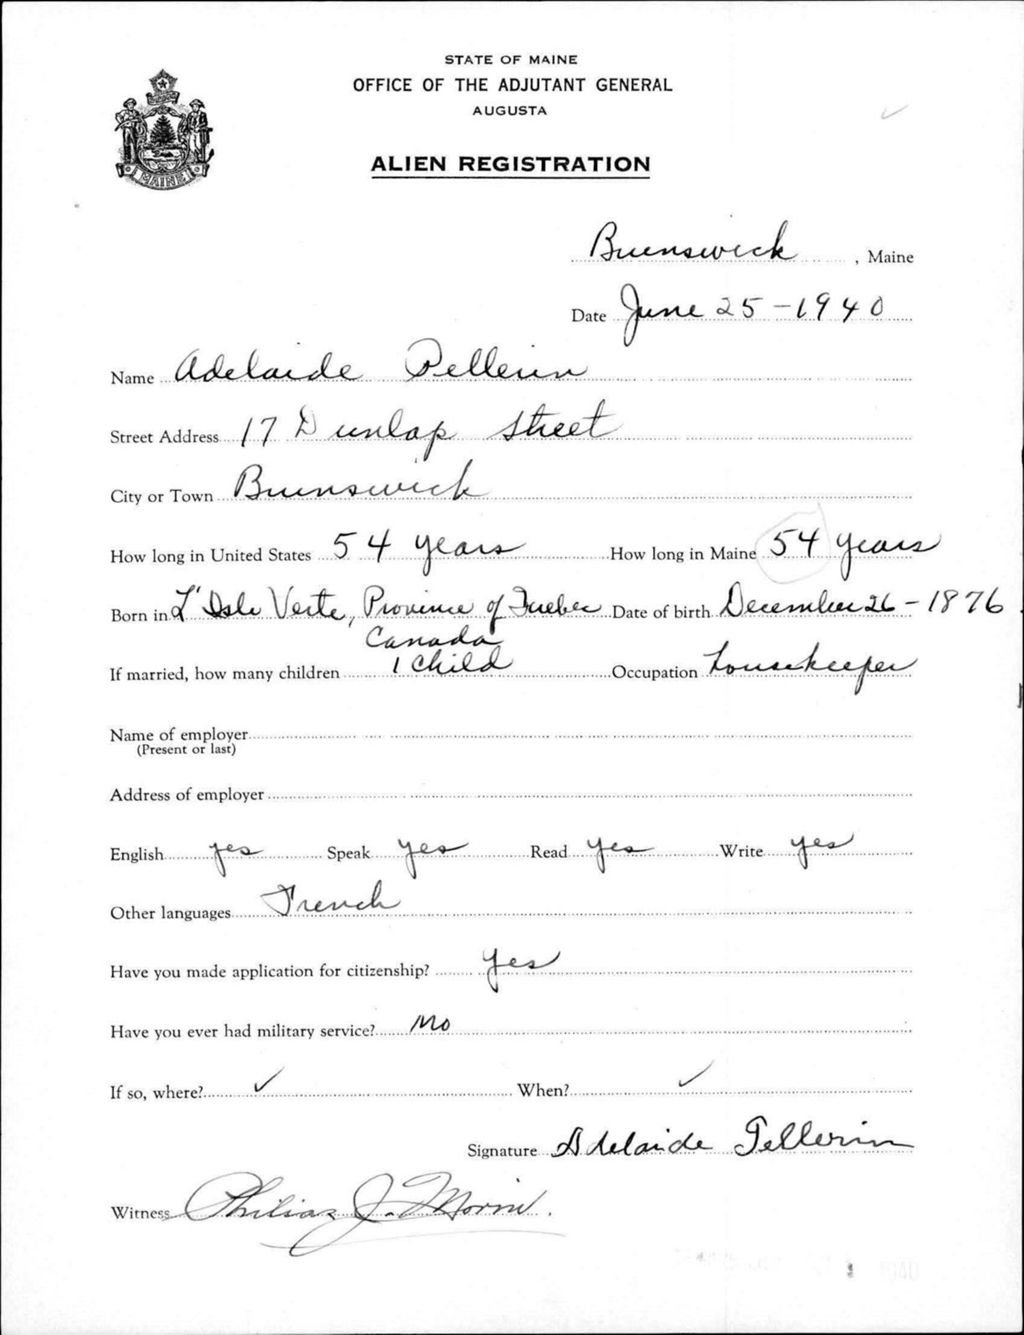 STATE OF MAINE
OFFICE OF THE ADJUTANT GENERAL
AUGUSTA
ALIEN REGISTRATION
MAINE
Brunswick, Maine
Date June 25 - 1940
Name Adelaide Pellerin
Street Address 17 Dunlap Street
City or Town Brunswick
How long in United States 54 years How long in Maine 54 years
Born in L'Isle Verte, Province of Quebec Date of birth December 26 - 1876
Canada
If married, how many children 1 child Occupation housekeeper
Name of employer
(Present or last)
Address of employer
English yes Speak yes Read yes Write yes
Other languages French
Have you made application for citizenship? yes
Have you ever had military service? no
If so, where? ✓ When? ✓
Signature Adelaide Pellerin
Witness Philias J. Morin.